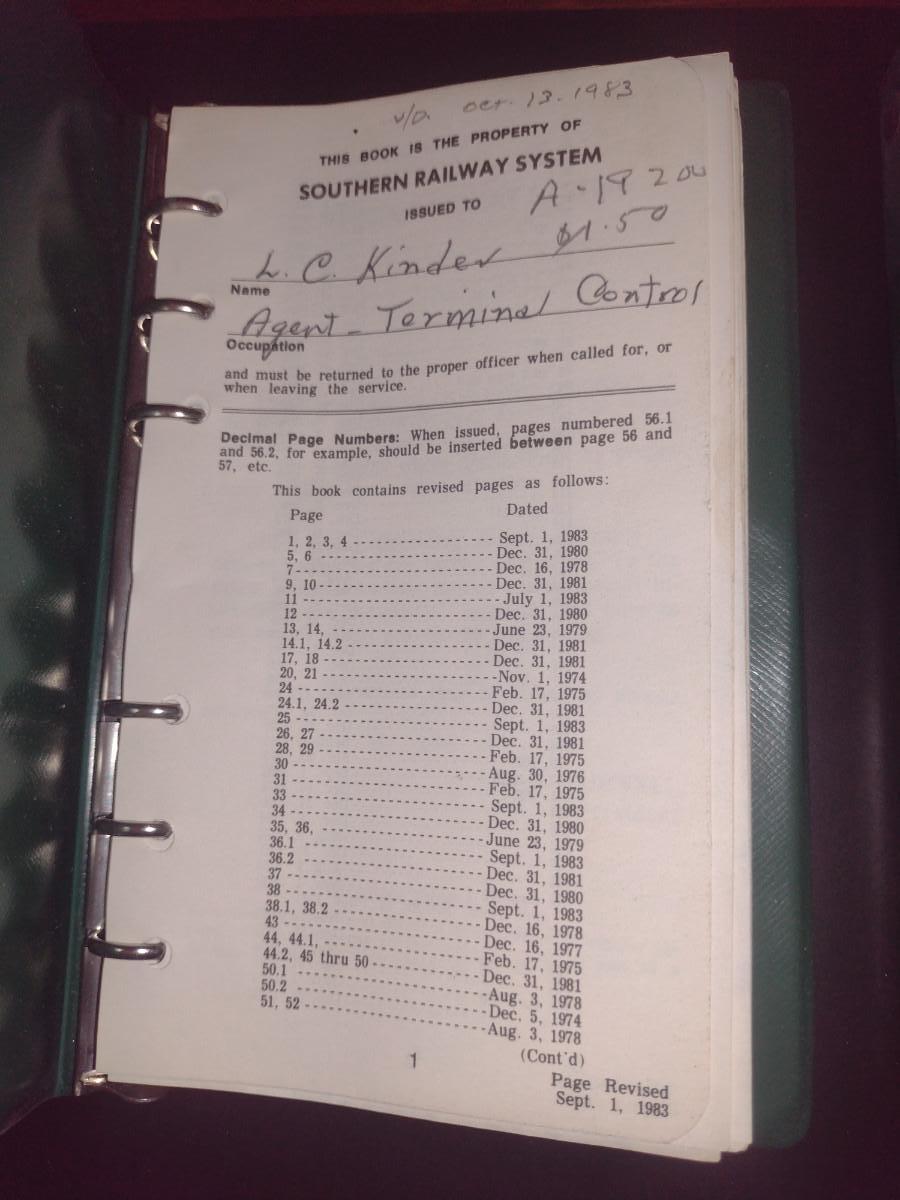 v/o. Oct. 13. 1983
THIS BOOK IS THE PROPERTY OF
SOUTHERN RAILWAY SYSTEM
ISSUED TO A-19200
L. C. Kinder $1.50
Name
Agent - Terminal Control
Occupation
and must be returned to the proper officer when called for, or
when leaving the service.
Decimal Page Numbers: When issued, pages numbered 56.1
and 56.2, for example, should be inserted between page 56 and
57, etc.
This book contains revised pages as follows:
Page Dated
1, 2, 3, 4 - Sept. 1, 1983
5, 6 - Dec. 31, 1980
7 - Dec. 16, 1978
9, 10 - Dec. 31, 1981
11 - July 1, 1983
12 - Dec. 31, 1980
13, 14, - June 23, 1979
14.1, 14.2 - Dec. 31, 1981
17, 18 - Dec. 31, 1981
20, 21 - Nov. 1, 1974
24 - Feb. 17, 1975
24.1, 24.2 - Dec. 31, 1981
25 - Sept. 1, 1983
26, 27 - Dec. 31, 1981
28, 29 - Feb. 17, 1975
30 - Aug. 30, 1976
31 - Feb. 17, 1975
33 - Sept. 1, 1983
34 - Dec. 31, 1980
35, 36, - June 23, 1979
36.1 - Sept. 1, 1983
36.2 - Dec. 31, 1981
37 - Dec. 31, 1980
38 - Sept. 1, 1983
38.1, 38.2 - Dec. 16, 1978
43 - Dec. 16, 1977
44, 44.1, - Feb. 17, 1975
44.2, 45 thru 50 - Dec. 31, 1981
50.1 - Aug. 3, 1978
50.2 - Dec. 5, 1974
51, 52 - Aug. 3, 1978
(Cont'd)
1
Page Revised
Sept. 1, 1983